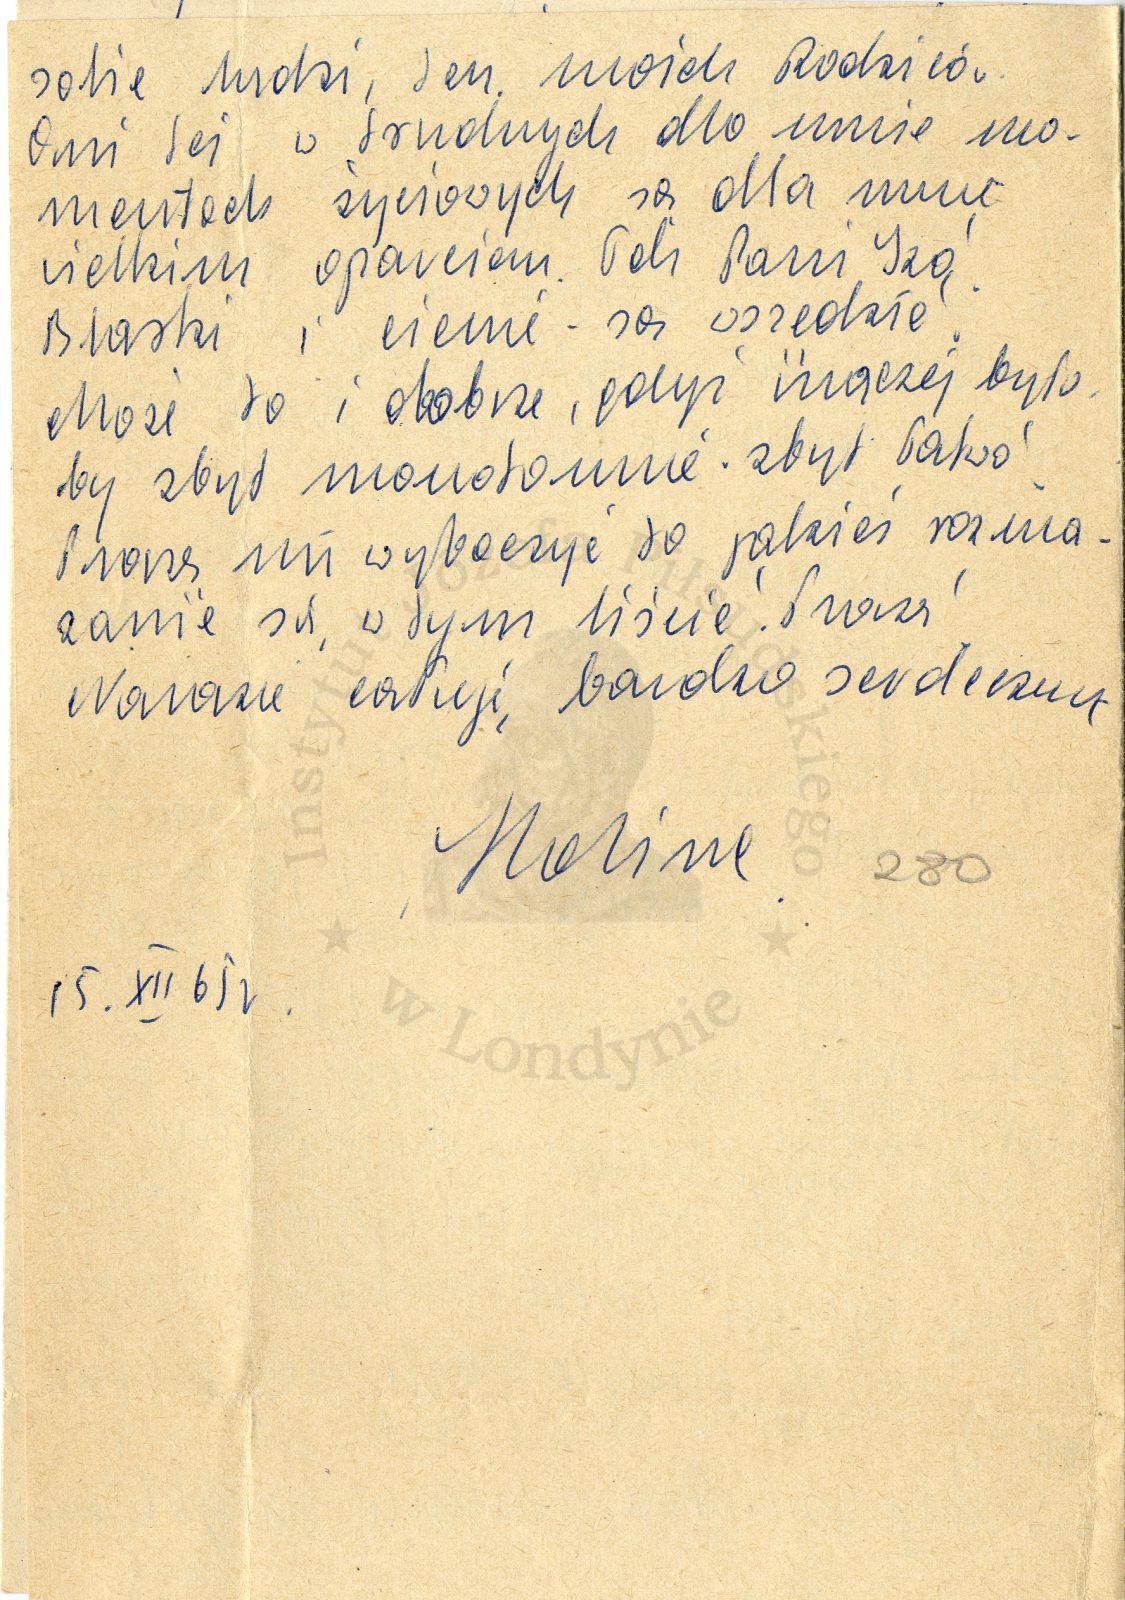 sobie ludzi, tzn. moich Rodziców.
Oni też w trudnych dla mnie mo-
mentach życiowych są dla mnie
wielkim oparciem. Tak Pani Izo,
Blaski i cienie - są wszędzie.
Może to i dobrze, gdyż inaczej było
by zbyt monotonnie - zbyt łatwo
Proszę mi wybaczyć to jakieś rozma-
zanie się w tym liście. Proszę
Narazie całuję, bardzo serdecznie
Halina
280
15. XII 65r.
Instytut Józefa Piłsudskiego
w Londynie